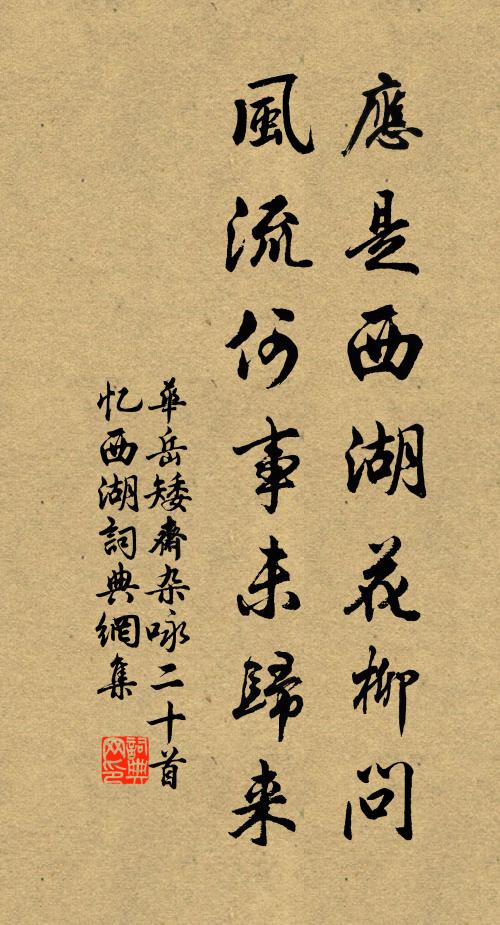 應是西湖花柳問
風流何事未歸来
華岳矮齋杂咏二十首
忆西湖詞典網集
詞典
网印